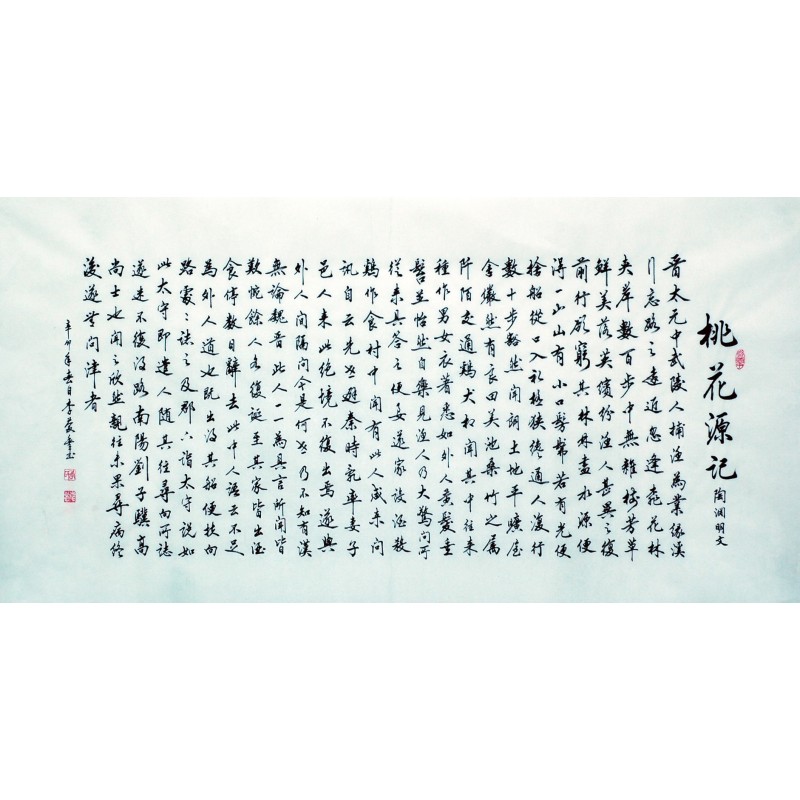 桃花源记
陶渊明文
晋太元中武陵人捕渔為業缘溪
行忘路之遠近忽逢桃花林
夹岸数百步中無雜樹芳草
鲜美落英缤纷渔人甚異之復
前行欲窮其林林盡水源便
得一山山有小口髣髴若有光便
捨船從口入初極狹纔通人復行
数十步豁然開朗土地平曠屋
舍儼然有良田美池桑竹之属
阡陌交通鷄犬相聞其中往来
種作男女衣著悉如外人黄髮垂
髫並怡然自樂見渔人乃大驚問所
從来具答之便要還家設酒殺
鷄作食村中聞有此人咸来問
訊自云先世避秦時亂率妻子
邑人来此绝境不復出焉遂與
外人間隔問今是何世乃不知有漢
無論魏晋此人一一為具言所聞皆
歎惋餘人各復延至其家皆出酒
食停数日辭去此中人語云不足
為外人道也既出得其船便扶向
路處處誌之及郡下詣太守説如
此太守即遣人隨其往尋向所誌
遂迷不復得路南陽劉子驥高
尚士也聞之欣然親往未果尋病终
後遂無問津者
辛卯年春日李